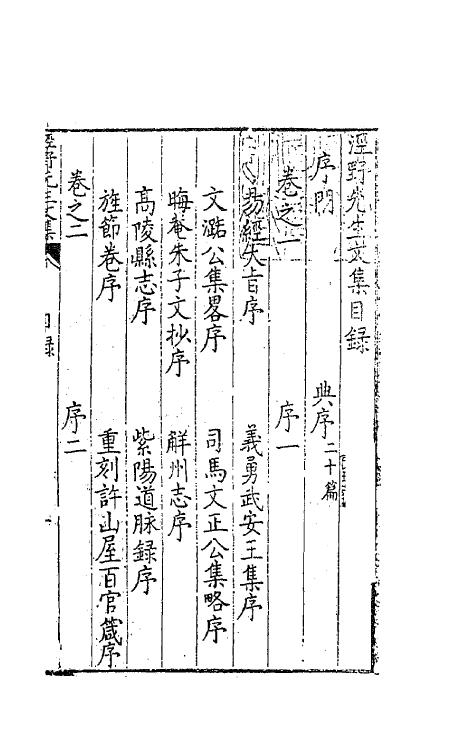 涇野先生文集目録
序門　典序二十篇
卷之一　序一
易經大旨序　義勇武安王集序
文潞公集畧序　司馬文正公集略序
晦菴朱子文抄序　解州志序
高陵縣志序　紫陽道脉録序
旌節卷序　重刻許山屋百官箴序
卷之二　序二
涇野先生文集　目録